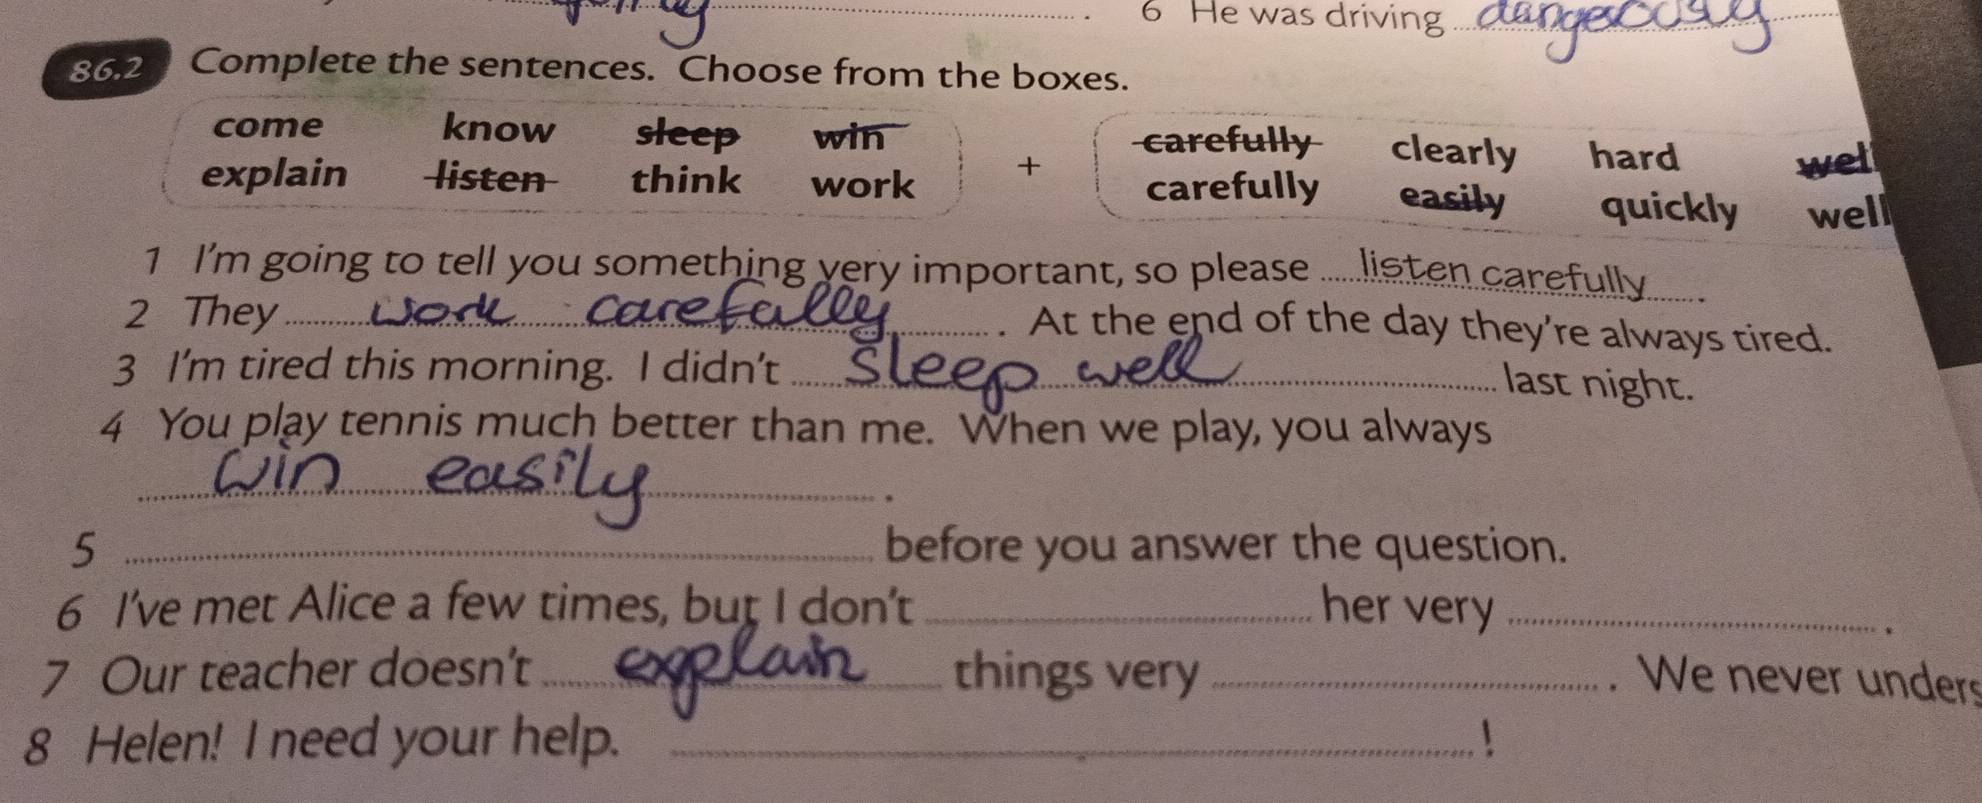 6 He was driving dangerously
86.2 Complete the sentences. Choose from the boxes.
come know sleep win + carefully clearly hard well
explain listen think work carefully easily quickly well
1 I'm going to tell you something very important, so please listen carefully.
2 They work carefully. At the end of the day they're always tired.
3 I'm tired this morning. I didn't sleep well last night.
4 You play tennis much better than me. When we play, you always
win easily.
5 before you answer the question.
6 I've met Alice a few times, but I don't her very .
7 Our teacher doesn't explain things very . We never unders
8 Helen! I need your help. !